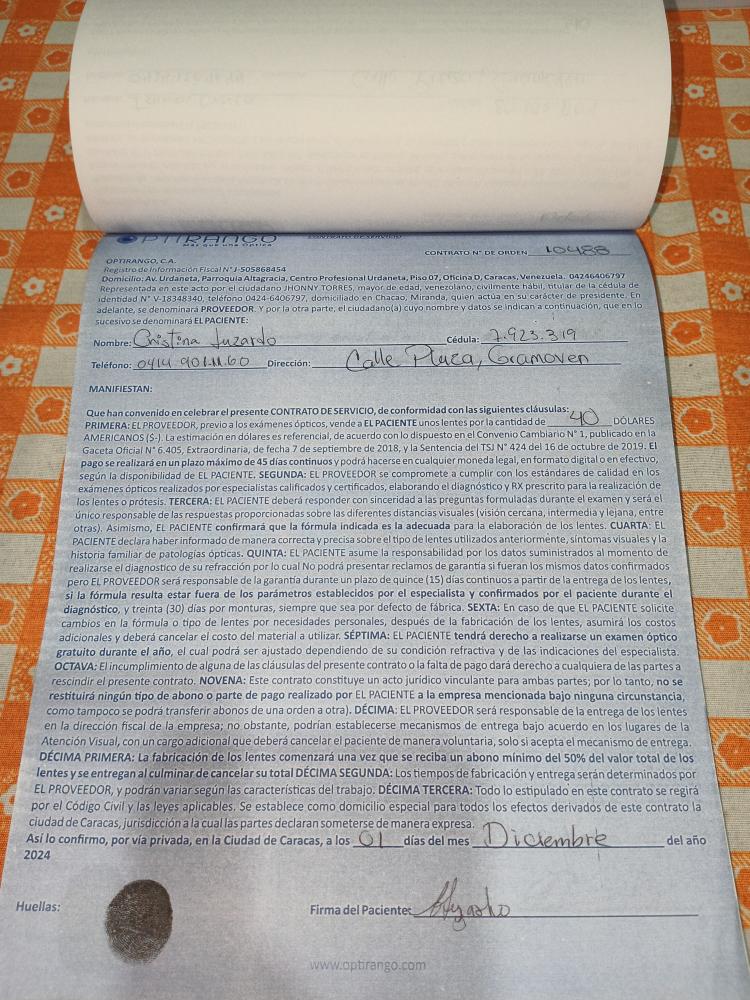 OPTIRANGO
Más que una Óptica
CONTRATO DE SERVICIO
CONTRATO N° DE ORDEN 10488
OPTIRANGO, C.A.
Registro de Información Fiscal N° J-505868454
Domicilio: Av. Urdaneta, Parroquia Altagracia, Centro Profesional Urdaneta, Piso 07, Oficina D, Caracas, Venezuela. 04246406797
Representada en este acto por el ciudadano JHONNY TORRES, mayor de edad, venezolano, civilmente hábil, titular de la cédula de
identidad N° V-18348340, teléfono 0424-6406797, domiciliado en Chacao, Miranda, quien actúa en su carácter de presidente. En
adelante, se denominará PROVEEDOR. Y por la otra parte, el ciudadano(a) cuyo nombre y datos se indican a continuación, que en lo
sucesivo se denominará EL PACIENTE:
Nombre: Cristina Luzardo Cédula: 7.923.319
Teléfono: 0414 901.11.60 Dirección: Calle Plaza, Gramoven
MANIFIESTAN:
Que han convenido en celebrar el presente CONTRATO DE SERVICIO, de conformidad con las siguientes cláusulas:
PRIMERA: EL PROVEEDOR, previo a los exámenes ópticos, vende a EL PACIENTE unos lentes por la cantidad de 40 DÓLARES
AMERICANOS ($-). La estimación en dólares es referencial, de acuerdo con lo dispuesto en el Convenio Cambiario N° 1, publicado en la
Gaceta Oficial N° 6.405, Extraordinaria, de fecha 7 de septiembre de 2018, y la Sentencia del TSJ N° 424 del 16 de octubre de 2019. El
pago se realizará en un plazo máximo de 45 días continuos y podrá hacerse en cualquier moneda legal, en formato digital o en efectivo,
según la disponibilidad de EL PACIENTE. SEGUNDA: EL PROVEEDOR se compromete a cumplir con los estándares de calidad en los
exámenes ópticos realizados por especialistas calificados y certificados, elaborando el diagnóstico y RX prescrito para la realización de
los lentes o prótesis. TERCERA: EL PACIENTE deberá responder con sinceridad a las preguntas formuladas durante el examen y será el
único responsable de las respuestas proporcionadas sobre las diferentes distancias visuales (visión cercana, intermedia y lejana, entre
otras). Asimismo, EL PACIENTE confirmará que la fórmula indicada es la adecuada para la elaboración de los lentes. CUARTA: EL
PACIENTE declara haber informado de manera correcta y precisa sobre el tipo de lentes utilizados anteriormente, síntomas visuales y la
historia familiar de patologías ópticas. QUINTA: EL PACIENTE asume la responsabilidad por los datos suministrados al momento de
realizarse el diagnostico de su refracción por lo cual No podrá presentar reclamos de garantía si fueran los mismos datos confirmados
pero EL PROVEEDOR será responsable de la garantía durante un plazo de quince (15) días continuos a partir de la entrega de los lentes,
si la fórmula resulta estar fuera de los parámetros establecidos por el especialista y confirmados por el paciente durante el
diagnóstico, y treinta (30) días por monturas, siempre que sea por defecto de fábrica. SEXTA: En caso de que EL PACIENTE solicite
cambios en la fórmula o tipo de lentes por necesidades personales, después de la fabricación de los lentes, asumirá los costos
adicionales y deberá cancelar el costo del material a utilizar. SÉPTIMA: EL PACIENTE tendrá derecho a realizarse un examen óptico
gratuito durante el año, el cual podrá ser ajustado dependiendo de su condición refractiva y de las indicaciones del especialista.
OCTAVA: El incumplimiento de alguna de las cláusulas del presente contrato o la falta de pago dará derecho a cualquiera de las partes a
rescindir el presente contrato. NOVENA: Este contrato constituye un acto jurídico vinculante para ambas partes; por lo tanto, no se
restituirá ningún tipo de abono o parte de pago realizado por EL PACIENTE a la empresa mencionada bajo ninguna circunstancia,
como tampoco se podrá transferir abonos de una orden a otra). DÉCIMA: EL PROVEEDOR será responsable de la entrega de los lentes
en la dirección fiscal de la empresa; no obstante, podrían establecerse mecanismos de entrega bajo acuerdo en los lugares de la
Atención Visual, con un cargo adicional que deberá cancelar el paciente de manera voluntaria, solo si acepta el mecanismo de entrega.
DÉCIMA PRIMERA: La fabricación de los lentes comenzará una vez que se reciba un abono mínimo del 50% del valor total de los
lentes y se entregan al culminar de cancelar su total DÉCIMA SEGUNDA: Los tiempos de fabricación y entrega serán determinados por
EL PROVEEDOR, y podrán variar según las características del trabajo. DÉCIMA TERCERA: Todo lo estipulado en este contrato se regirá
por el Código Civil y las leyes aplicables. Se establece como domicilio especial para todos los efectos derivados de este contrato la
ciudad de Caracas, jurisdicción a la cual las partes declaran someterse de manera expresa.
Así lo confirmo, por vía privada, en la Ciudad de Caracas, a los 01 días del mes Diciembre del año
2024
Huellas:
Firma del Paciente:
www.optirango.com